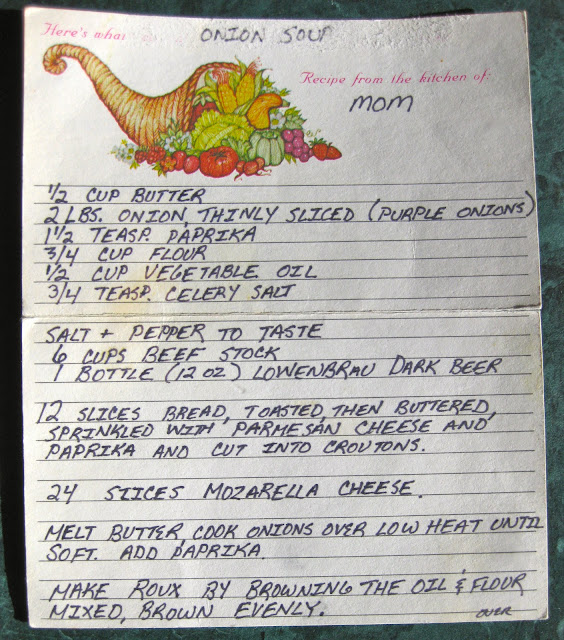 Here's what
ONION SOUP
Recipe from the kitchen of:
MOM
1/2 CUP BUTTER
2 LBS. ONION, THINLY SLICED (PURPLE ONIONS)
1 1/2 TEASP. PAPRIKA
3/4 CUP FLOUR
1/2 CUP VEGETABLE OIL
3/4 TEASP. CELERY SALT
SALT + PEPPER TO TASTE
6 CUPS BEEF STOCK
1 BOTTLE (12 OZ) LOWENBRAU DARK BEER
12 SLICES BREAD, TOASTED, THEN BUTTERED,
SPRINKLED WITH PARMESAN CHEESE AND
PAPRIKA AND CUT INTO CROUTONS.
24 SLICES MOZARELLA CHEESE.
MELT BUTTER, COOK ONIONS OVER LOW HEAT UNTIL
SOFT. ADD PAPRIKA.
MAKE ROUX BY BROWNING THE OIL & FLOUR
MIXED, BROWN EVENLY.
OVER